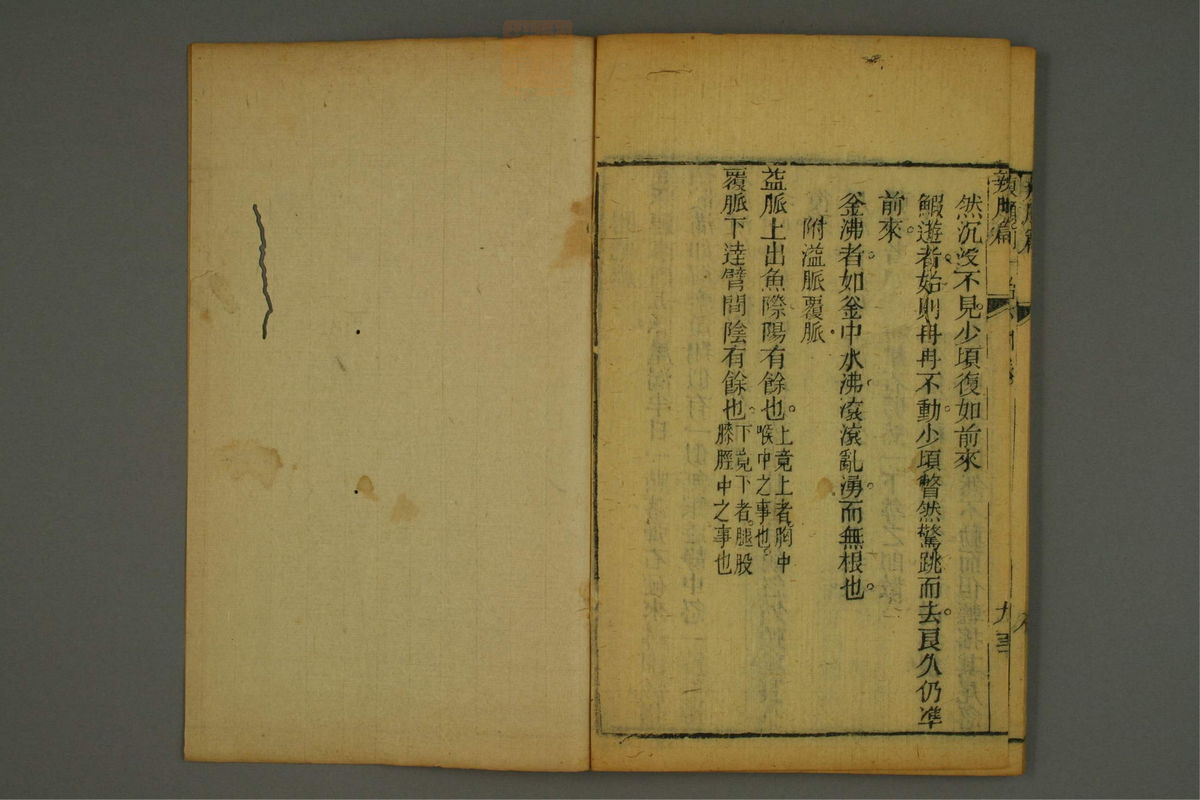 然沉没不見少頃復如前來
鰕遊者始則冉冉不動少頃瞥然驚跳而去良久仍準
前來
釜沸者如釜中水沸滾滾亂湧而無根也
附溢脈覆脈
溢脈上出魚際陽有餘也上竟上者胸中
喉中之事也
覆脈下達臂間陰有餘也下竟下者腿股
膝脛中之事也